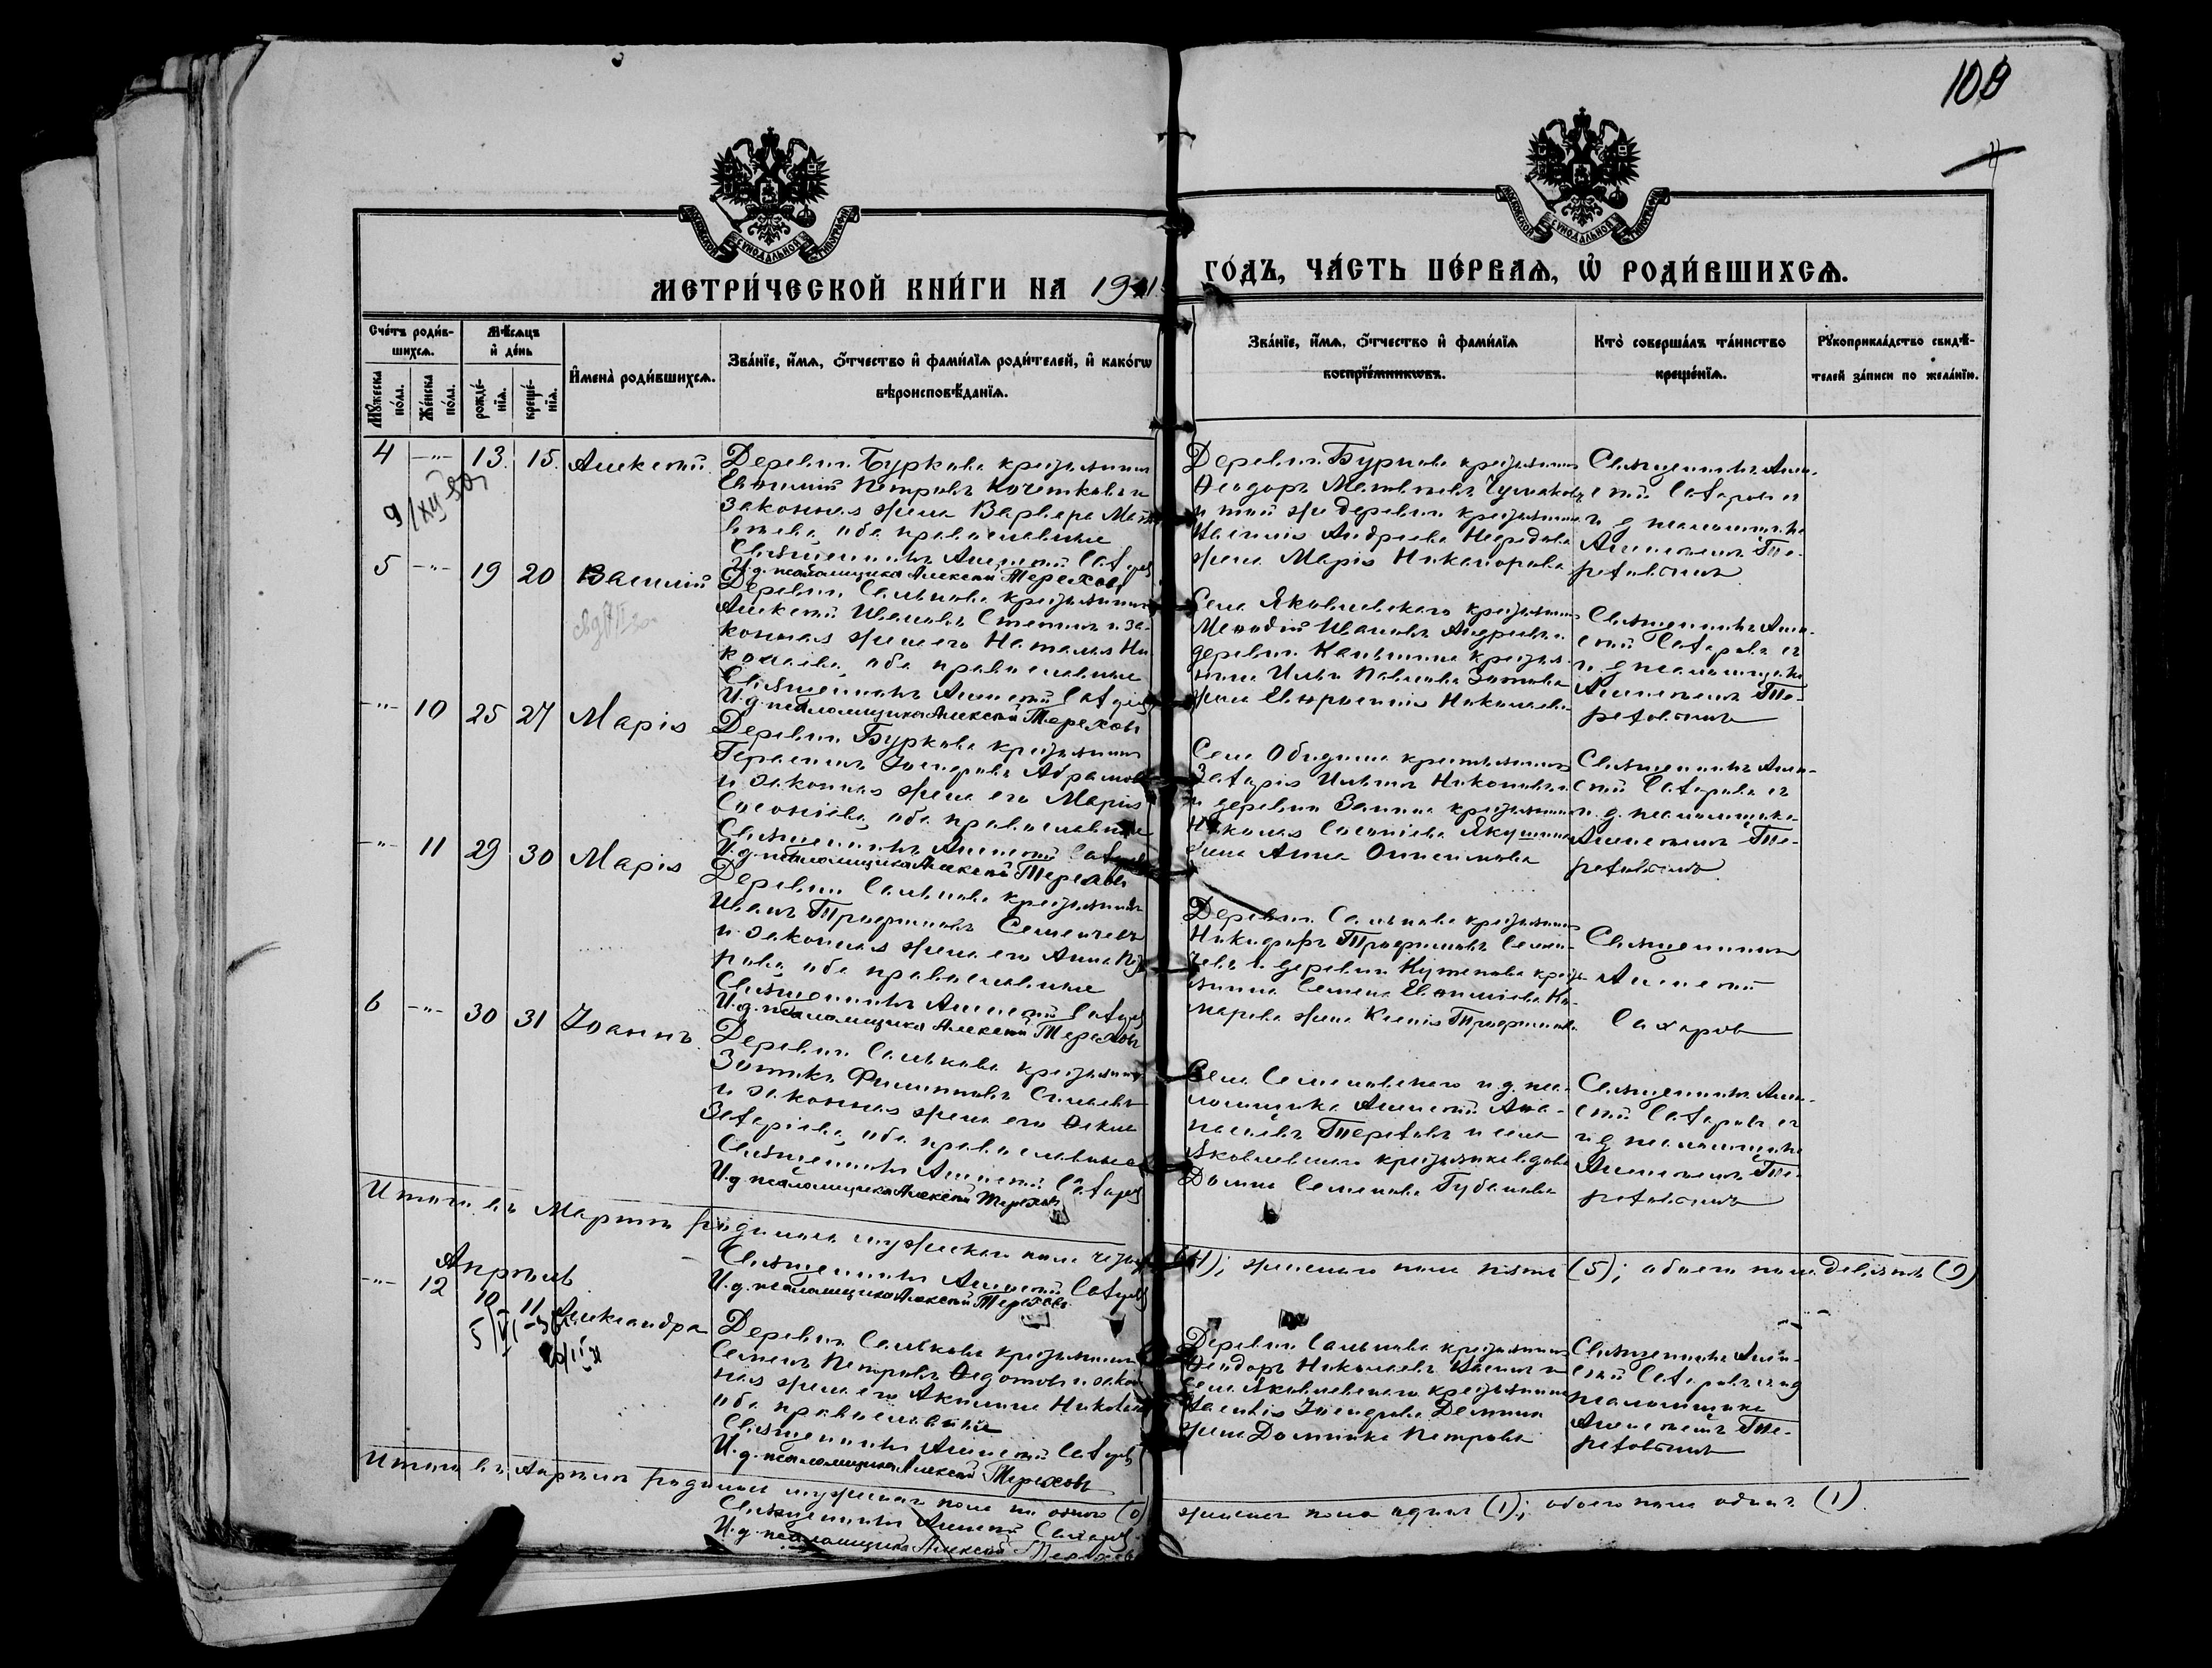 108
МОСКОВСКОЙ СѴНОДАЛЬНОЙ ТИПОГРАФІИ
МОСКОВСКОЙ СѴНОДАЛЬНОЙ ТИПОГРАФІИ
МЕТРИ́ЧЕСКОЙ КНИ́ГИ НА 1911 ГО́ДЪ, ЧА́СТЬ ПЕ́РВАѦ, Ѽ РОДИ́ВШИХСѦ.
Сче́тъ роди́в-
шихсѧ.
Мѹ́жеска
по́ла.
Же́нска
по́ла.
Мѣ́сѧцъ
и҆ де́нь
рожде́-
нїѧ.
креще́-
нїѧ.
И҆мена̀ роди́вшихсѧ.
Зва́нїе, и҆́мѧ, ѻ҆́тчество и҆ фами́лїѧ роди́телей, и҆ како́гѡ
вѣроисповѣ́данїѧ.
Зва́нїе, и҆́мѧ, ѻ҆́тчество и҆ фами́лїѧ
воспрїе́мникѡвъ.
Кто̀ соверша́лъ та́инство
креще́нїѧ.
Рѹкоприкла́дство свидѣ́-
телей за́писи по жела́нїю.
4 —"— 13. 15. Алексѣй.
9/XII 50г
Деревни Буркова крестьянинъ
Евѳимій Петровъ Кочетковъ и
законная жена Варвара Мат-
вѣева, оба православные
Священникъ Алексѣй Сахаровъ
И.д. псаломщика Алексѣй Тереховъ
Деревни Буркова крестьянинъ
Ѳеодоръ Матвѣевъ Чушаковъ
и той же деревни крестьянина
жена Марія Никанорова
Священникъ Алек-
сѣй Сахаровъ съ
и д псаломщика
Алексѣемъ Те-
реховымъ
5 —"— 19 20 Василій
Деревни Салькова крестьянинъ
Алексѣй Ивановъ Степинъ и за-
конная жена его Наталія Ни-
колаева, оба православные
Священникъ Алексѣй Сахаровъ
И.д. псаломщика Алексѣй Тереховъ
Села Яковлевскаго крестьянинъ
Меѳодій Ивановъ Андреевъ и
крестья-
нина Ильи Павлова Зотова
жена Евфросинія Николаева
Священникъ Алек-
сѣй Сахаровъ съ
и. д псаломщика
Алексѣемъ Те-
реховымъ
—"— 10 25 27 Марія
Деревни Буркова крестьянинъ
Герасимъ Іосифовъ Абрамовъ
и законная жена его Марія
Созонтьева, оба православные
Священникъ Алексѣй Сахаровъ
И.д. псаломщика Алексѣй Тереховъ
Села Обидина крестьянинъ
Захарія Ильинъ Никоновъ и
и деревни крестьянина
Николая Якушина
жена Анна Онисимова
Священникъ Алек-
сѣй Сахаровъ съ
и. д. псаломщика
Алексѣемъ Те-
реховымъ
—"— 11 29 30 Марія
Деревни Салькова крестьянинъ
Иванъ Трофимовъ Семеичевъ
и законная жена его Анна
оба православные
Священникъ Алексѣй Сахаровъ
И.д. псаломщика Алексѣй Тереховъ
Деревни Салькова крестьянинъ
Никифоръ Трофимовъ Семеи-
чевъ и деревни Кутепова кресть-
янина Семена
жена Ксенія Трофимова
Священникъ
Алексѣй
Сахаровъ
6 —"— 30 31 Іоаннъ.
Деревни Салькова крестьянинъ
Зотикъ Филипповъ
и законная жена его Ѳекла
Захаріева, оба православные
Священникъ Алексѣй Сахаровъ
И.д. псаломщика Алексѣй Тереховъ
Села Семеновскаго и.д. пса-
ломщика Алексѣй Аѳа-
насіевъ Тереховъ и села
Яковлевскаго крестьянская вдова
Домна Семенова Губанова
Священникъ Алек-
сѣй Сахаровъ съ
и д псаломщика
Алексѣемъ Те-
реховымъ
Итого въ Мартѣ родилось мужескаго пола четыре (4); женскаго пола пять (5); обоего пола девять (9)
Священникъ Алексѣй Сахаровъ
И.д. псаломщика Алексѣй Тереховъ
Апрѣль
—"— 12 10 11 Александра
Деревни Салькова крестьянинъ
Семенъ Петровъ Ѳедотовъ и закон-
ная жена его Акилина
оба православные
Священникъ Алексѣй Сахаровъ
И.д. псаломщика Алексѣй Тереховъ
Деревни Салькова крестьянинъ
Ѳеодоръ Николаевъ и
села Яковлевскаго крестьянина
Іосифова Демина
жена Домника Петрова
Священникъ Алек-
сѣй Сахаровъ съ и д
псаломщика
Алексѣемъ Те-
реховымъ
Итого въ Апрѣлѣ родилось мужескаго пола ни одного (0) женскаго пола одна (1); обоего пола одинъ (1).
Священникъ Алексѣй Сахаровъ
И.д. псаломщика Алексѣй Тереховъ